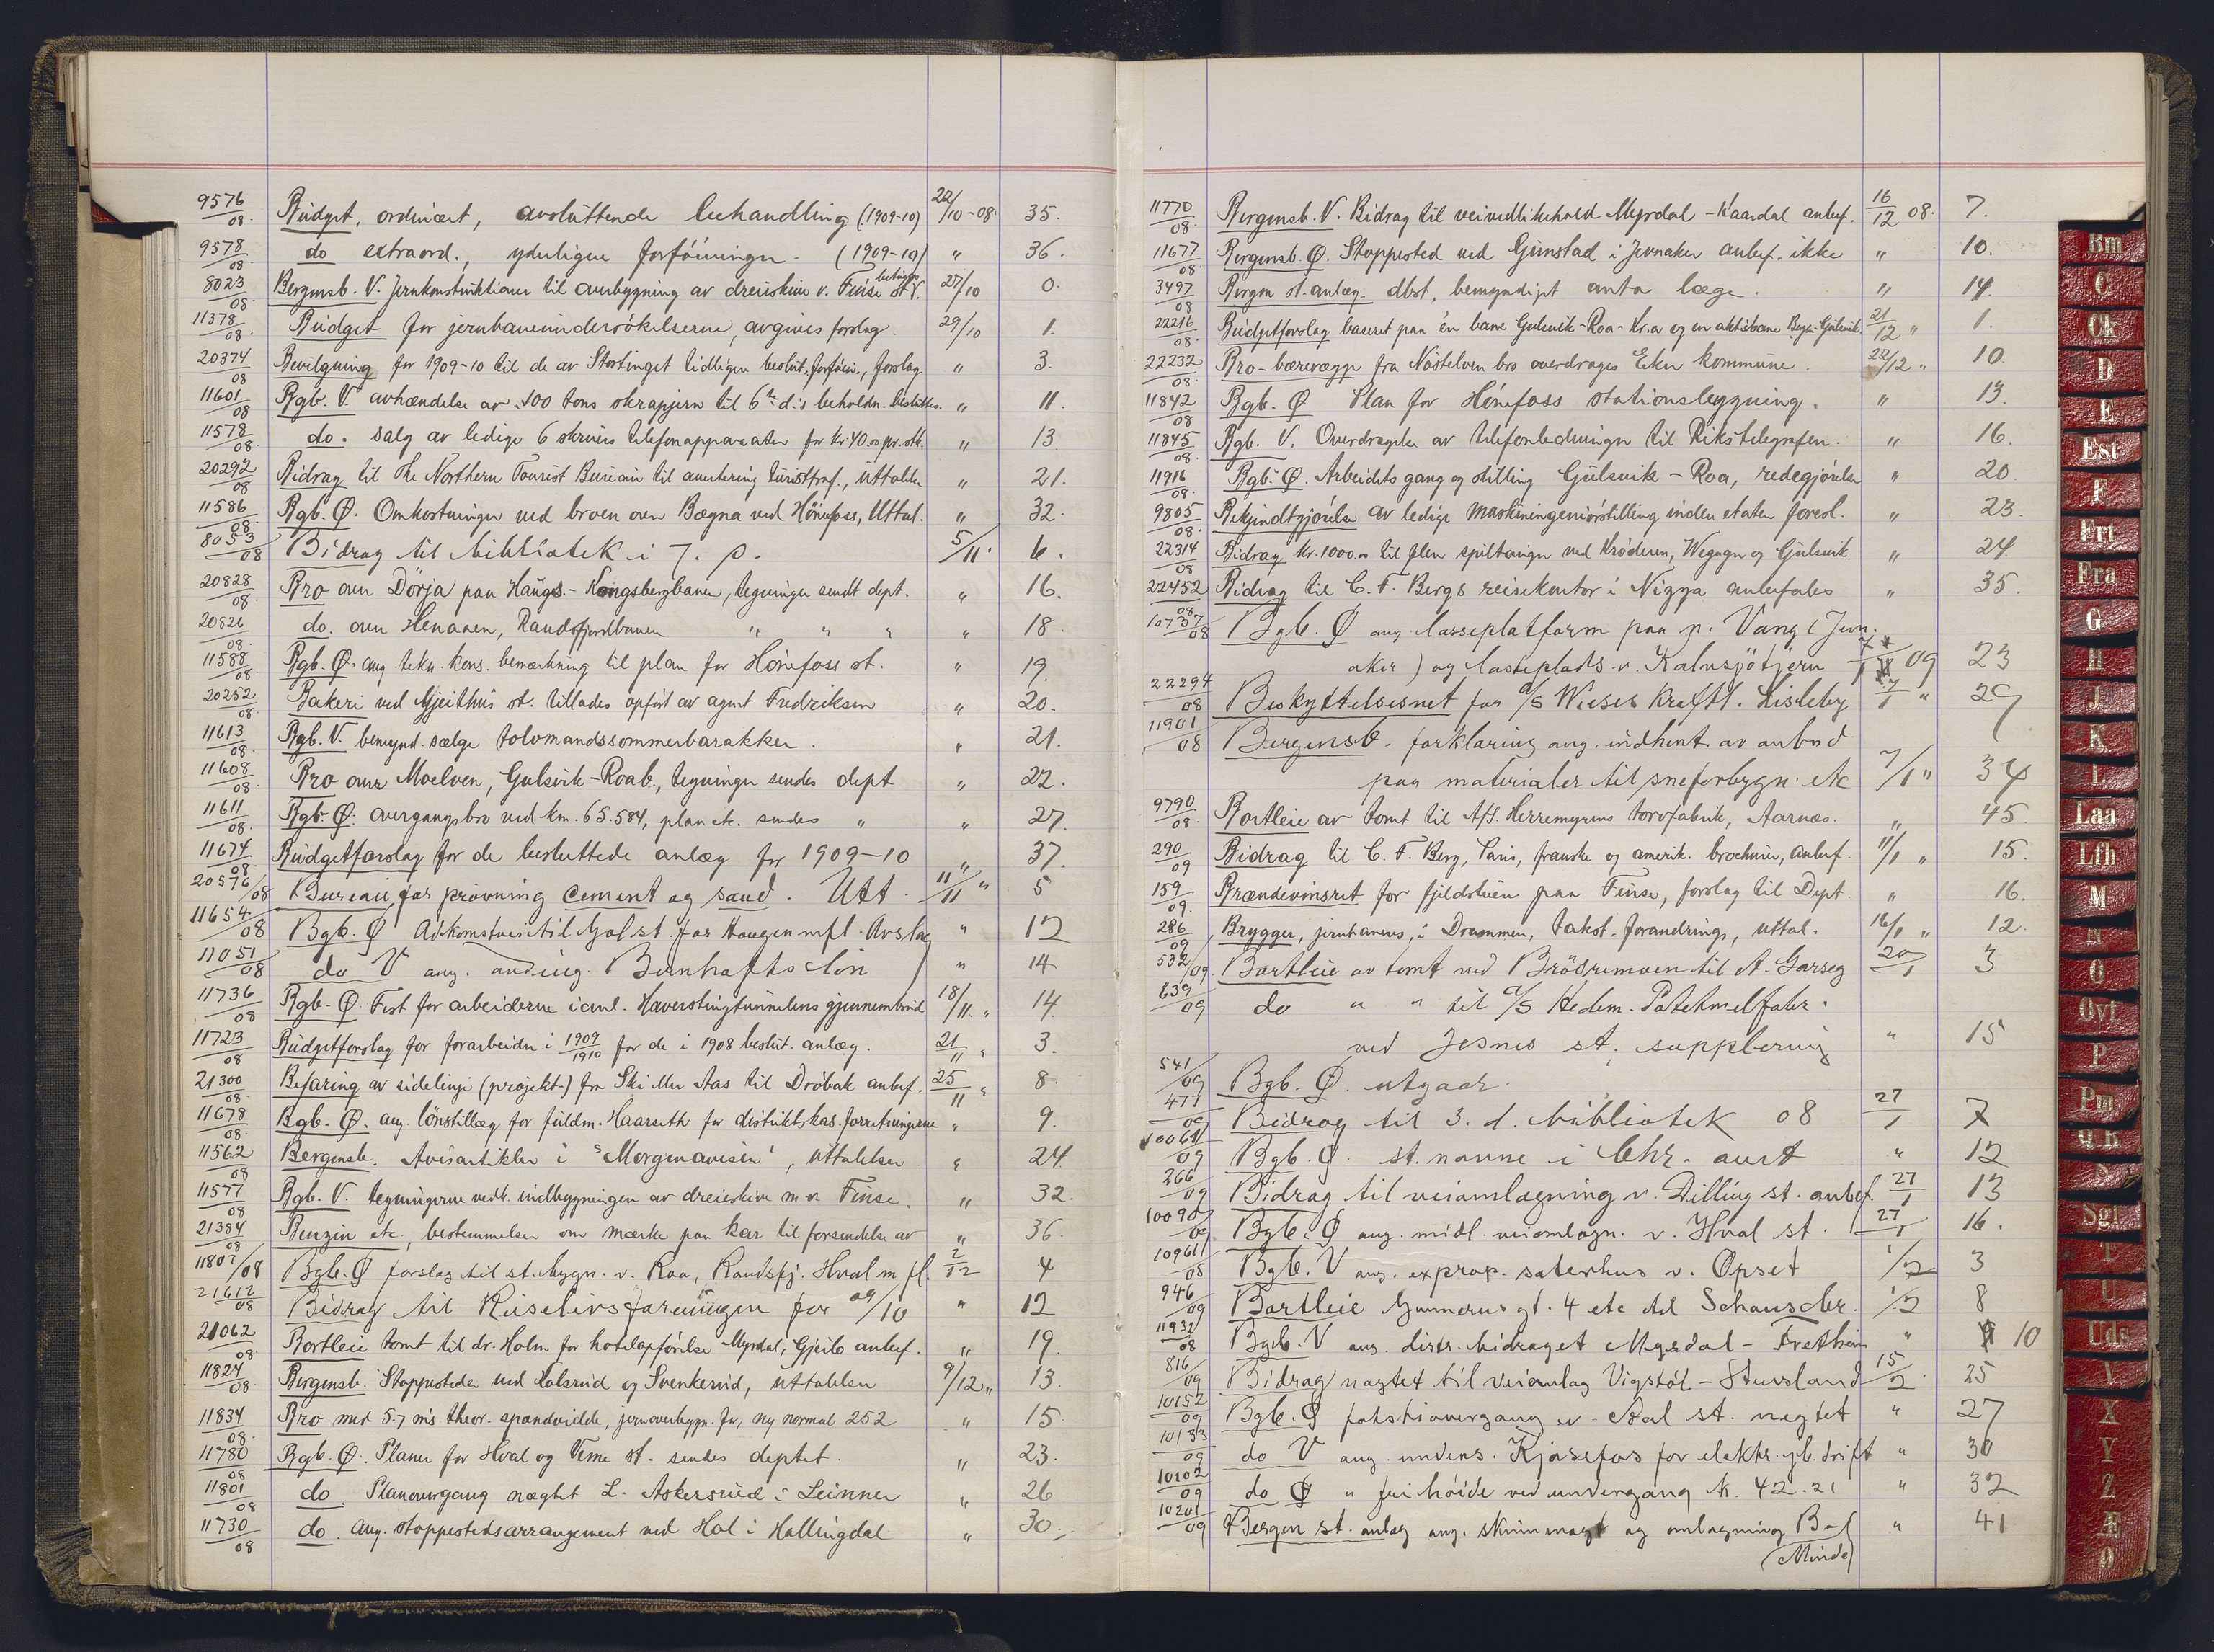 9576/08. Budget, ordinært, avsluttende behandling (1909-10) 22/10-08. 35.
9578/08. do extraord., yderligere forføininger. (1909-10) " 36.
8023/08. Bergensb. V. Jernkonstruktioner til overbygning av dreieskive v. Finse st. 27/10 0.
11378/08. Budget for jernbaneundersøkelserne, avgives forslag. 29/10 1.
20374/08 Bevilgning for 1909-10 til de av Stortinget tidligere beslut. forføin., forslag " 3.
11601/08 Bgb. V. avhændelse av 100 tons skrapjern til 6te d.s beholdn. besluttes. " 11.
11578/08. do. salg av ledige 6 skrivers telefonapparater for kr. 40.00 pr. stk. " 13.
20292/08 Bidrag til The Northern Tourist Bureau til avertering turisttraf., uttalelse " 21.
11586/08. Bgb. Ø. Omkostninger ved broen over Bægna ved Hønefoss, Uttal. " 32.
8053/08 Bidrag til bibliotek i 7. d. 5/11. 6.
20828/08. Bro over Dørja paa Haugs.-Kongsbergbanen, tegninger sendt dept. " 16.
20826/08. do. over Henaaen, Randsfjordbanen " " " " 18.
11588/08. Bgb. Ø. ang. tekn. kons. bemærkning til plan for Hønefoss st. " 19.
20252/08. Bakeri ved Gjeithus st. tillades opført av agent Fredriksen " 20.
11613/08. Bgb. V. bemynd. sælge tolvmandssommerbarakker. " 21.
11608/08. Bro over Moelven, Gulsvik-Roab., tegninger sendes dept " 22.
11611/08. Bgb. Ø. overgangsbro ved km. 65.584, plan etc. sendes " " 27.
11674/08. Budgetforslag for de besluttede anlæg for 1909-10 " 37.
20576/08 Bureau for prøvning cement og sand. Utt. 11/11 " 5
11654/08 Bgb. Ø Adkomstvei til Gol st. for Haugen mfl. Avslag " 12
11051/08 do V ang. andrag. Bernhafts løn " 14
11736/08 Bgb. Ø. Fest for arbeiderne i anl. Haverstingtunnelens gjennembrud 18/11. " 14.
11723/08 Budgetforslag for forarbeider i 1909/1910 for de i 1908 beslut. anlæg. 21/11 " 3.
21300/08. Befaring av sidelinje (projekt.) fra Ski eller Aas til Drøbak anbef. 25/11 " 8.
11678/08. Bgb. Ø. ang. lønstillæg for fuldm. Haarseth for distriktskas. forretningerne " 9.
11562/08 Bergensb. Avisartikler i "Morgenavisen", uttalelser " 24.
11577/08 Bgb. V. tegningerne vedk. indbygningen av dreieskive m.v. Finse. " 32.
21384/08. Benzin etc., bestemmelser om mærke paa kar til forsendelse av " 36.
11807/08 Bgb. Ø forslag til st. bygn. v. Roa, Randsfj. Hval m fl. 2/12 4
21612/08 Bidrag til Reiselivsforeningen for 09/10 " 12
21062/08. Bortleie tomt til dr. Holm for hotelopførelse Myrdal, Gjeilo anbef. " 19.
11824/08. Bergensb. Stoppesteder ved Kolsrud og Svenkerud, uttalelser 9/12 " 13.
11834/08. Bro med 5-7 m's theor. spændvidde, jernoverbygn. for, ny normal 252 " 15.
11780/08 Bgb. Ø. Planer for Hval og Veme st. sendes deptet. " 23.
11801/08 do. Planovergang nægtet L. Askersrud i Leinner " 26
11730/08 do. ang. stoppestedsarrangement ved Hol i Hallingdal " 30.
11770/08. Bergensb. V. Bidrag til veivedlikehold Myrdal-Kaardal anbef. 16/12 08. 7.
11677/08 Bergensb. Ø. Stoppested ved Grinstad i Jevnaker anbef. ikke " 10.
3497/08 Bergen st. anlæg. dbst, bemyndiget anta læge. " 14.
22216/08. Budgetforslag baseret paa én bane Gulsvik-Roa-Kr.a og en aktiebane Bergen-Gulsvik 21/12 " 1.
22232/08. Bro-bærevægge fra Nøstelven bro overdrages Eker kommune. 22/12 " 10.
11842/08 Bgb. Ø Plan for Hønefoss stationsbygning. " 13.
11845/08. Bgb. V. Overdragelse av telefonledninger til Rikstelegrafen. " 16.
11916/08. Bgb. Ø. Arbeidets gang og stilling Gulsvik-Roa, redegjørelse " 20.
9805/08. Bekjendtgjørelse av ledige maskiningeniørstilling inden etaten foresl. " 23.
22314/08 Bidrag kr. 1000.00 til flere spiltouger ved Krøderen, og Gulsvik. " 24.
22452/08 Bidrag til C. F. Bergs reisekontor i Nizza anbefales " 35.
10737/08 Bgb. Ø ang. lasseplatform paa p. Vang (Jevnaker) og lasteplads v. Kalvsjøtjern 09 23
22294/08 Beskyttelsesnet for A/S Wieses Kreftl. Lisleby 7/1 " 29
11901/08 Bergensb. forklaring ang. indhent. av anbud
paa materialer til sneforbygn. etc 7/1 " 34
9790/08. Bortleie av tomt til A/S. Herremyrens torvfabrik, Aarnæs. " 45.
290/09 Bidrag til C. F. Berg, Paris, franske og amerik. brochurer, anbef. 11/1 " 15.
159/09. Brændevinsret for fjeldstuen paa Finse, forslag til Dept. " 16.
286/09 Brygger, jernbanens, i Drammen, takst. forandring, uttal. 16/1 " 12.
532/09. Bortleie av tomt ved Brødremoen til A. Garseg 20/1 3
639/09 do " " til A/S Hedem. Potetmelfabr.
ved Jesnes st. supplering " 15
541/09 Bgb. Ø. utgaar.
477/09 Bidrag til 3. d. bibliotek 08 27/1 7
10061/09 Bgb. Ø. st. navne i Chr. amt " 12
266/09 Bidrag til veiomlægning v. Dilling st. anbef. 27/1 13
10090/09 Bgb. Ø ang. midl. veiomlægn. v. Hval st. 27/1 16.
10961/08 Bgb. V ang. exprop. sæterhus v. Opset 1/2 3
946/09 Bortleie Gunnerus gt. 4 etc til Schanscher. 1/2 8
11932/08 Bgb. V ang. distr. bidraget Myrdal-Fretheim " 10
816/09 Bidrag nægtet til veianlæg Vigstøl-Stuvsland 15/2 25
10152/09 Bgb. Ø fotstiovergang v. Aal st. negtet " 27
10133/09 do V ang. unders. Kjosefos for elektr. jb. drift " 30
10102/09 do Ø " fri høide ved undergang k. 42.21 " 32
10201/09 Bergen st. anlæg ang. omlægning B-
(Minde) " 41
Bm
C
Ck
D
E
Est
F
Frt
Fra
G
H
J
K
L
Laa
Lfh
M
N
O
Ovt
P
Pm
Q R
S
Sgl
T
U
Uds
V
X
Y
Z
Æ
Ø